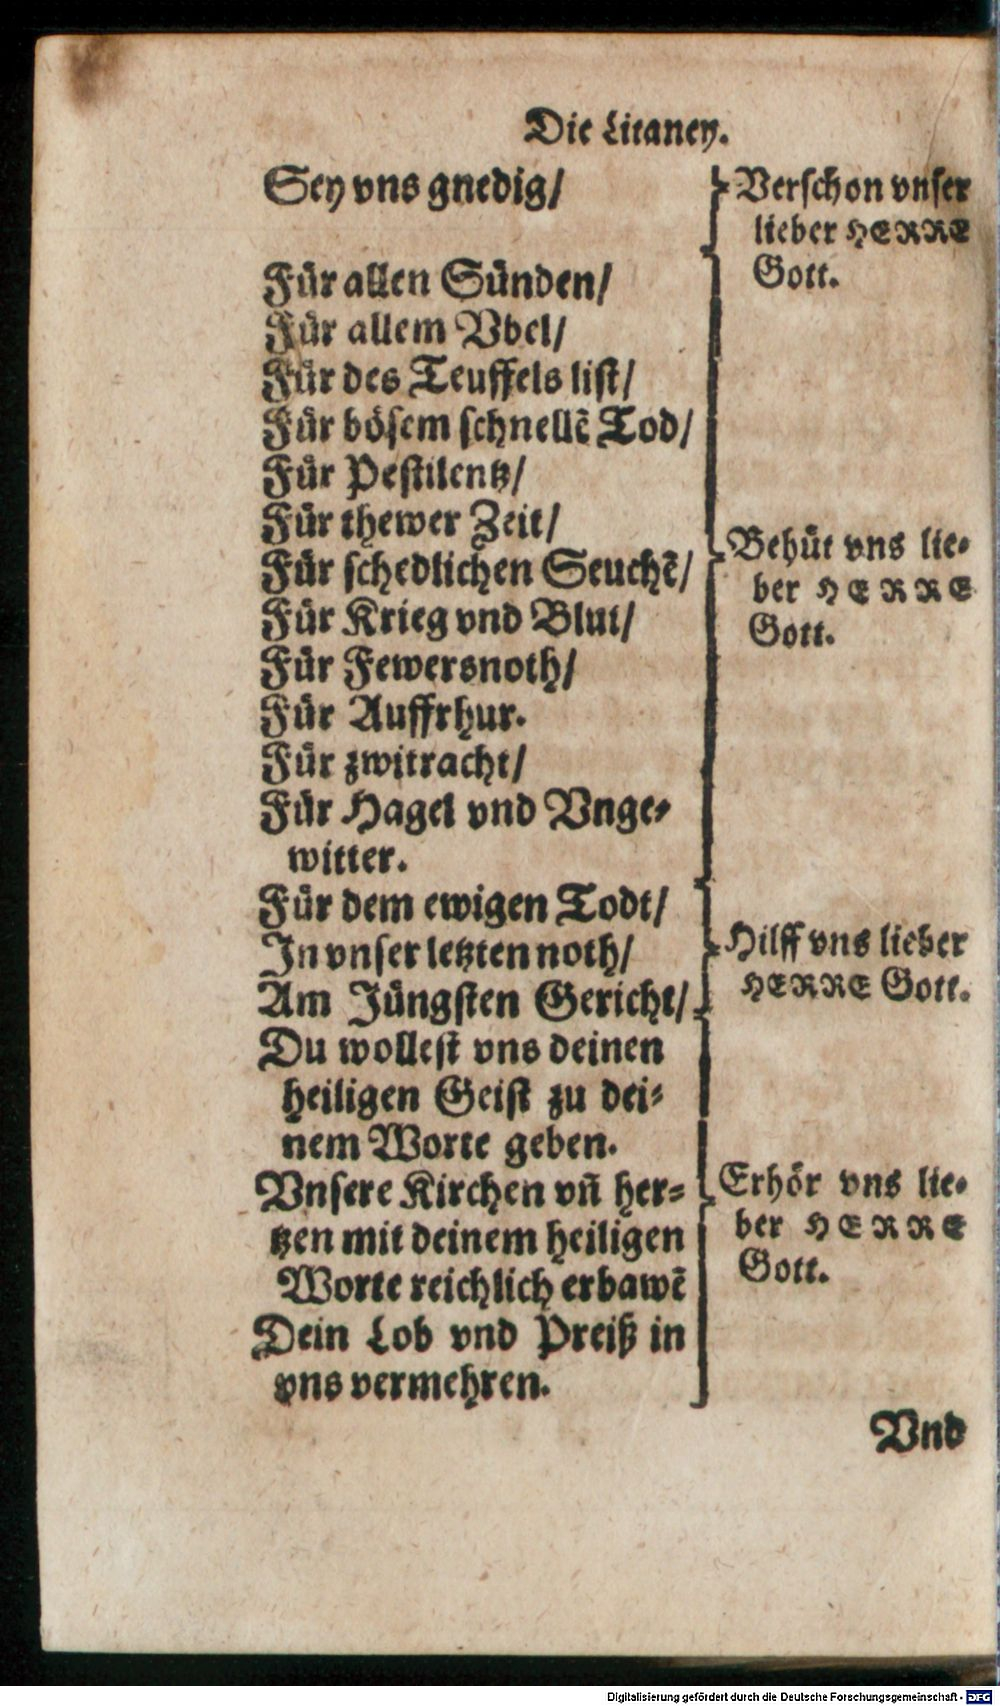 Die Litaney.
Sey vns gnedig/
Verschon vnser
lieber HERRE
Gott.
Für allen Sünden/
Für allem Vbel/
Für des Teuffels list/
Für bösem schnellẽ Tod/
Für Pestilentz/
Für thewer Zeit/
Für schedlichen Seuchẽ/
Für Krieg vnd Blut/
Für Fewersnoth/
Für Auffrhur.
Für zwitracht/
Für Hagel vnd Vnge-
witter.
Behüt vns lie-
ber HERRE
Gott.
Für dem ewigen Todt/
In vnser letzten noth/
Am Jüngsten Gericht/
Hilff vns lieber
HERRE Gott.
Du wollest vns deinen
heiligen Geist zu dei-
nem Worte geben.
Vnsere Kirchen vñ her-
tzen mit deinem heiligen
Worte reichlich erbawẽ
Dein Lob vnd Preiß in
vns vermehren.
Erhör vns lie-
ber HERRE
Gott.
Vnd
Digitalisierung gefördert durch die Deutsche Forschungsgemeinschaft - DFG